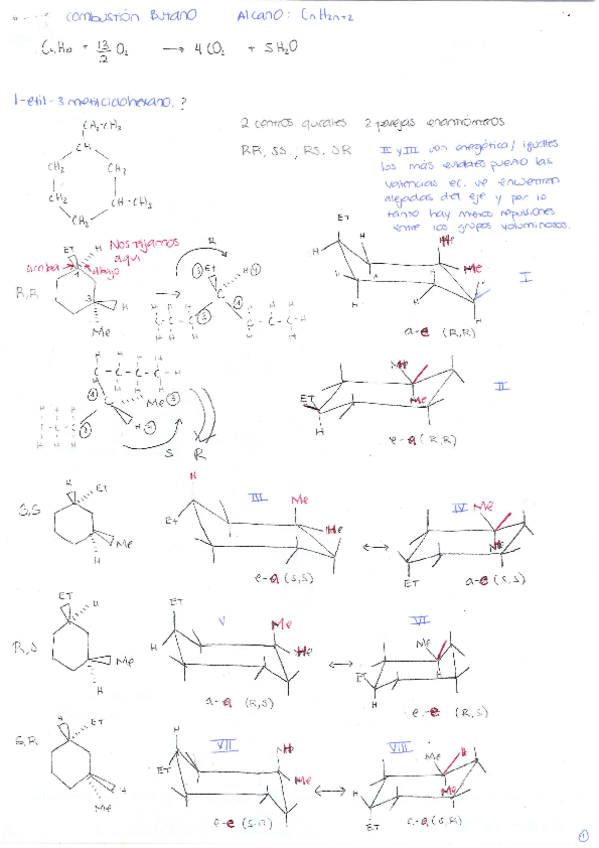 combustión Butano    Alcano: CnH2n+2
C4H10 + 13/2 O2 → 4CO2 + 5H2O
1-etil-3 metilciclohexano.?
CH2-CH3
CH
CH2 CH2
CH2 CH-CH3
CH2
2 centros quirales 2 parejas enantiómeros
RR, SS, RS, SR
II y III son energética/ iguales
los más estables puesto las
valencias ec. se encuentran
alejadas del eje y por lo
tanto hay menos repulsiones
entre los grupos voluminosos.
Et H
Nos fijamos
aquí
arriba 1 abajo
R,R
3 H
Me
R
Et H
C
C - C - C - C - H
Et
H
Me
I
a-e (R,R)
C - C - C - C - H
C Me
H
S R
II
Me
Et
Me
H
e-a (R,R)
S,S
H Et
Me
H
III
H
Me
Et
e-a (S,S)
IV
Me
ET
a-e (S,S)
R,S
ET H
Me
H
V
ET
Me
H
a-a (R,S)
VI
Me
H
e-e (R,S)
S,R
H ET
H
Me
VII
H
Me
ET
e-e (S,R)
VIII
Me H
Me
H
ET
(S,R)
1